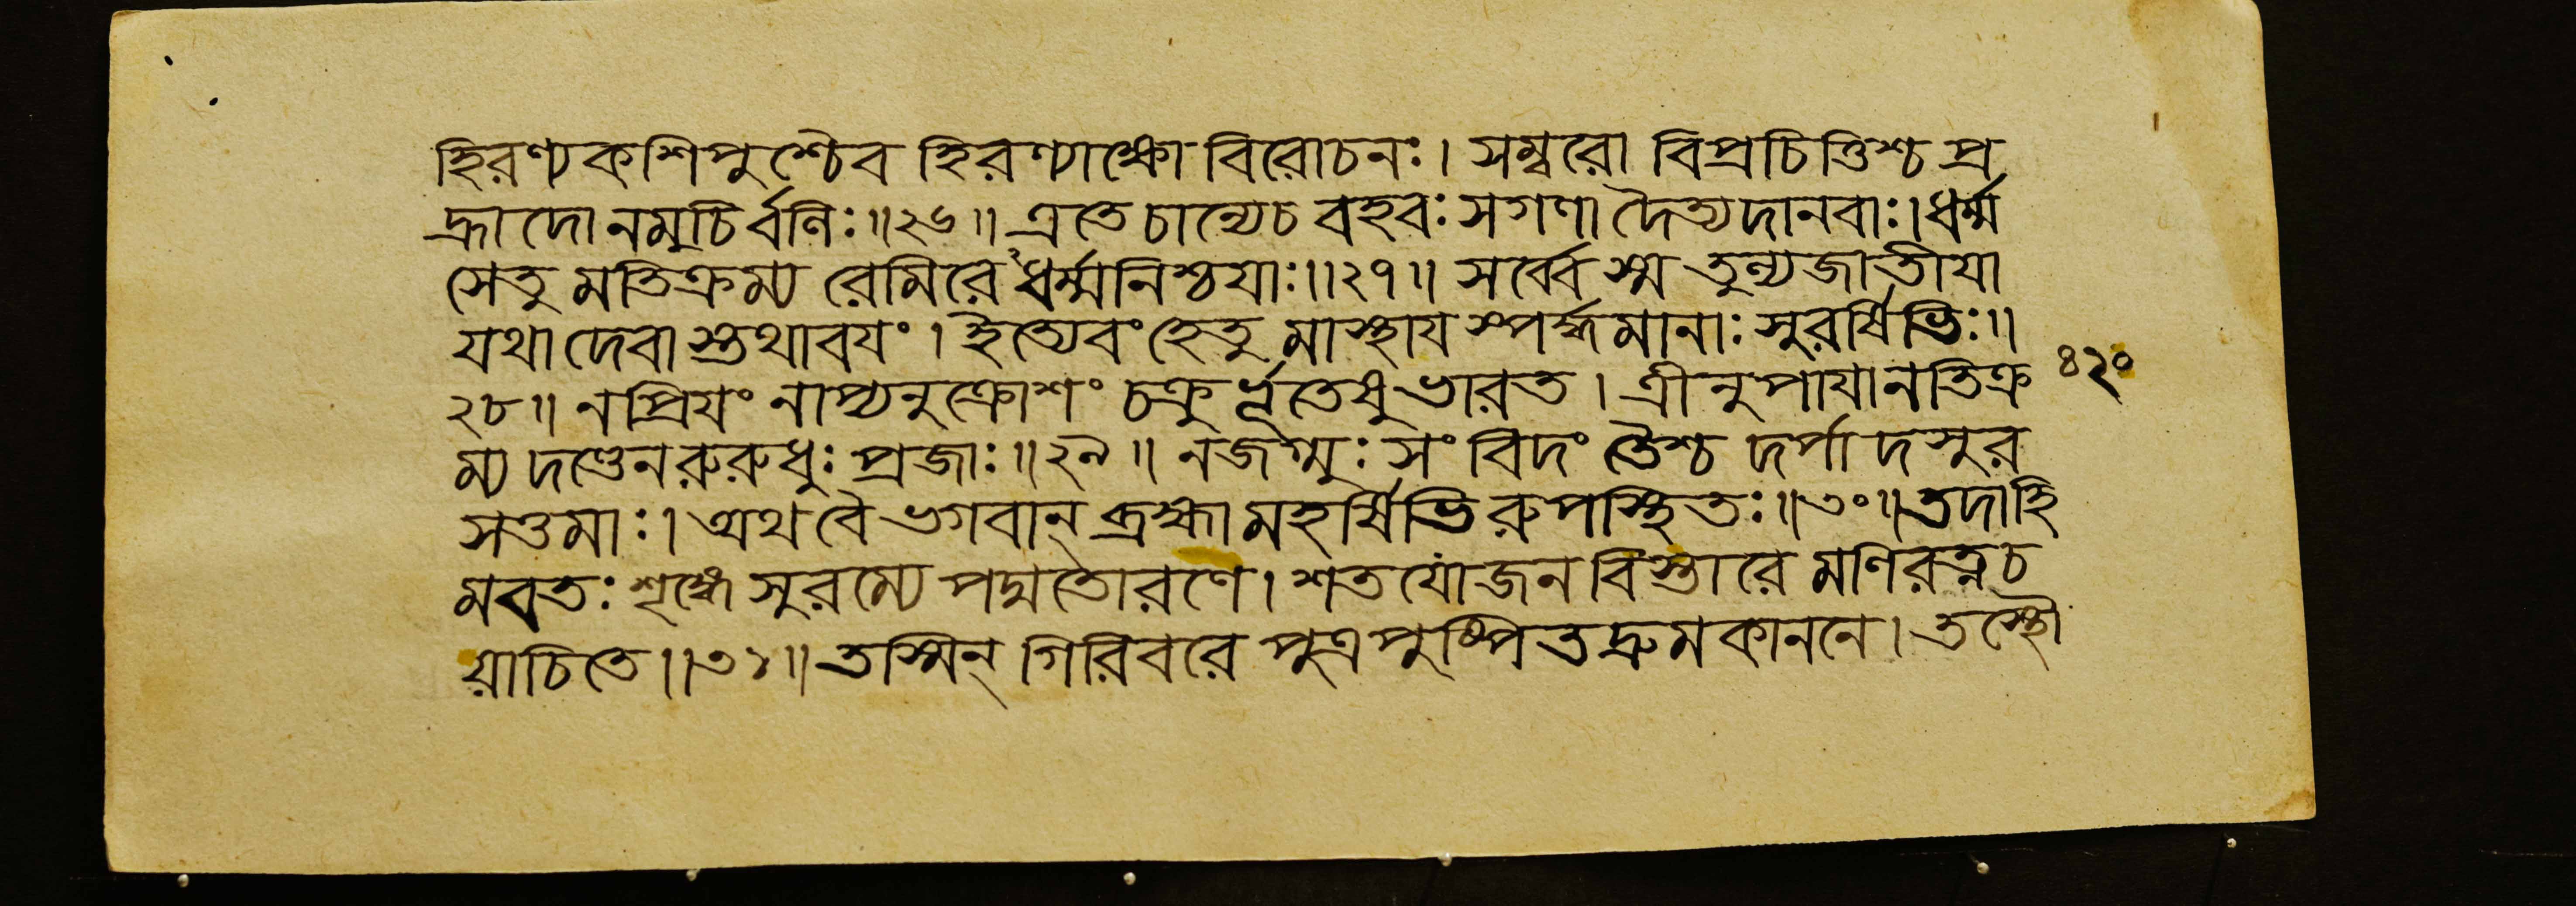 হিরণ্যকশিপুশ্চৈব হিরণ্যাক্ষো বিরোচনঃ। সম্বরো বিপ্রচিত্তিশ্চ প্র
হ্লাদো নমুচির্ব্বলিঃ॥২৬॥ এতে চান্যেচ বহবঃ সগণা দৈত্যদানবাঃ। ধর্ম্ম
সেতু মতিক্রম্য রেমিরেঽধর্ম্মনিশ্চয়াঃ॥২৭॥ সর্ব্বে স্ম তুল্যজাতীয়া
যথা দেবা স্তথাবয়ং। ইত্যেবং হেতু মাস্থায় স্পর্দ্ধমানাঃ সুরর্ষিভিঃ॥
২৮॥ নপ্রিয়ং নাপ্যনুক্রোশং চক্রুর্ভূতেষু ভারত। ত্রীনুপায়ানতিক্র ৪২০
ম্য দণ্ডেন রুরুধুঃ প্রজাঃ॥২৯॥ নজগ্মুঃ সংবিদং তৈশ্চ দর্পাদসুর
সত্তমাঃ। অথ বৈ ভগবান্ ব্রহ্মা মহর্ষিভিরুপস্থিতঃ॥৩০॥ তদাহি
মবতঃ শৃঙ্গে সুরম্যে পদ্মতোরণে। শতযোজনবিস্তারে মণিরত্নচ
য়াচিতে॥৩১॥ তস্মিন্ গিরিবরে পুত্র পুষ্পিতদ্রুমকাননে। তস্থৌ